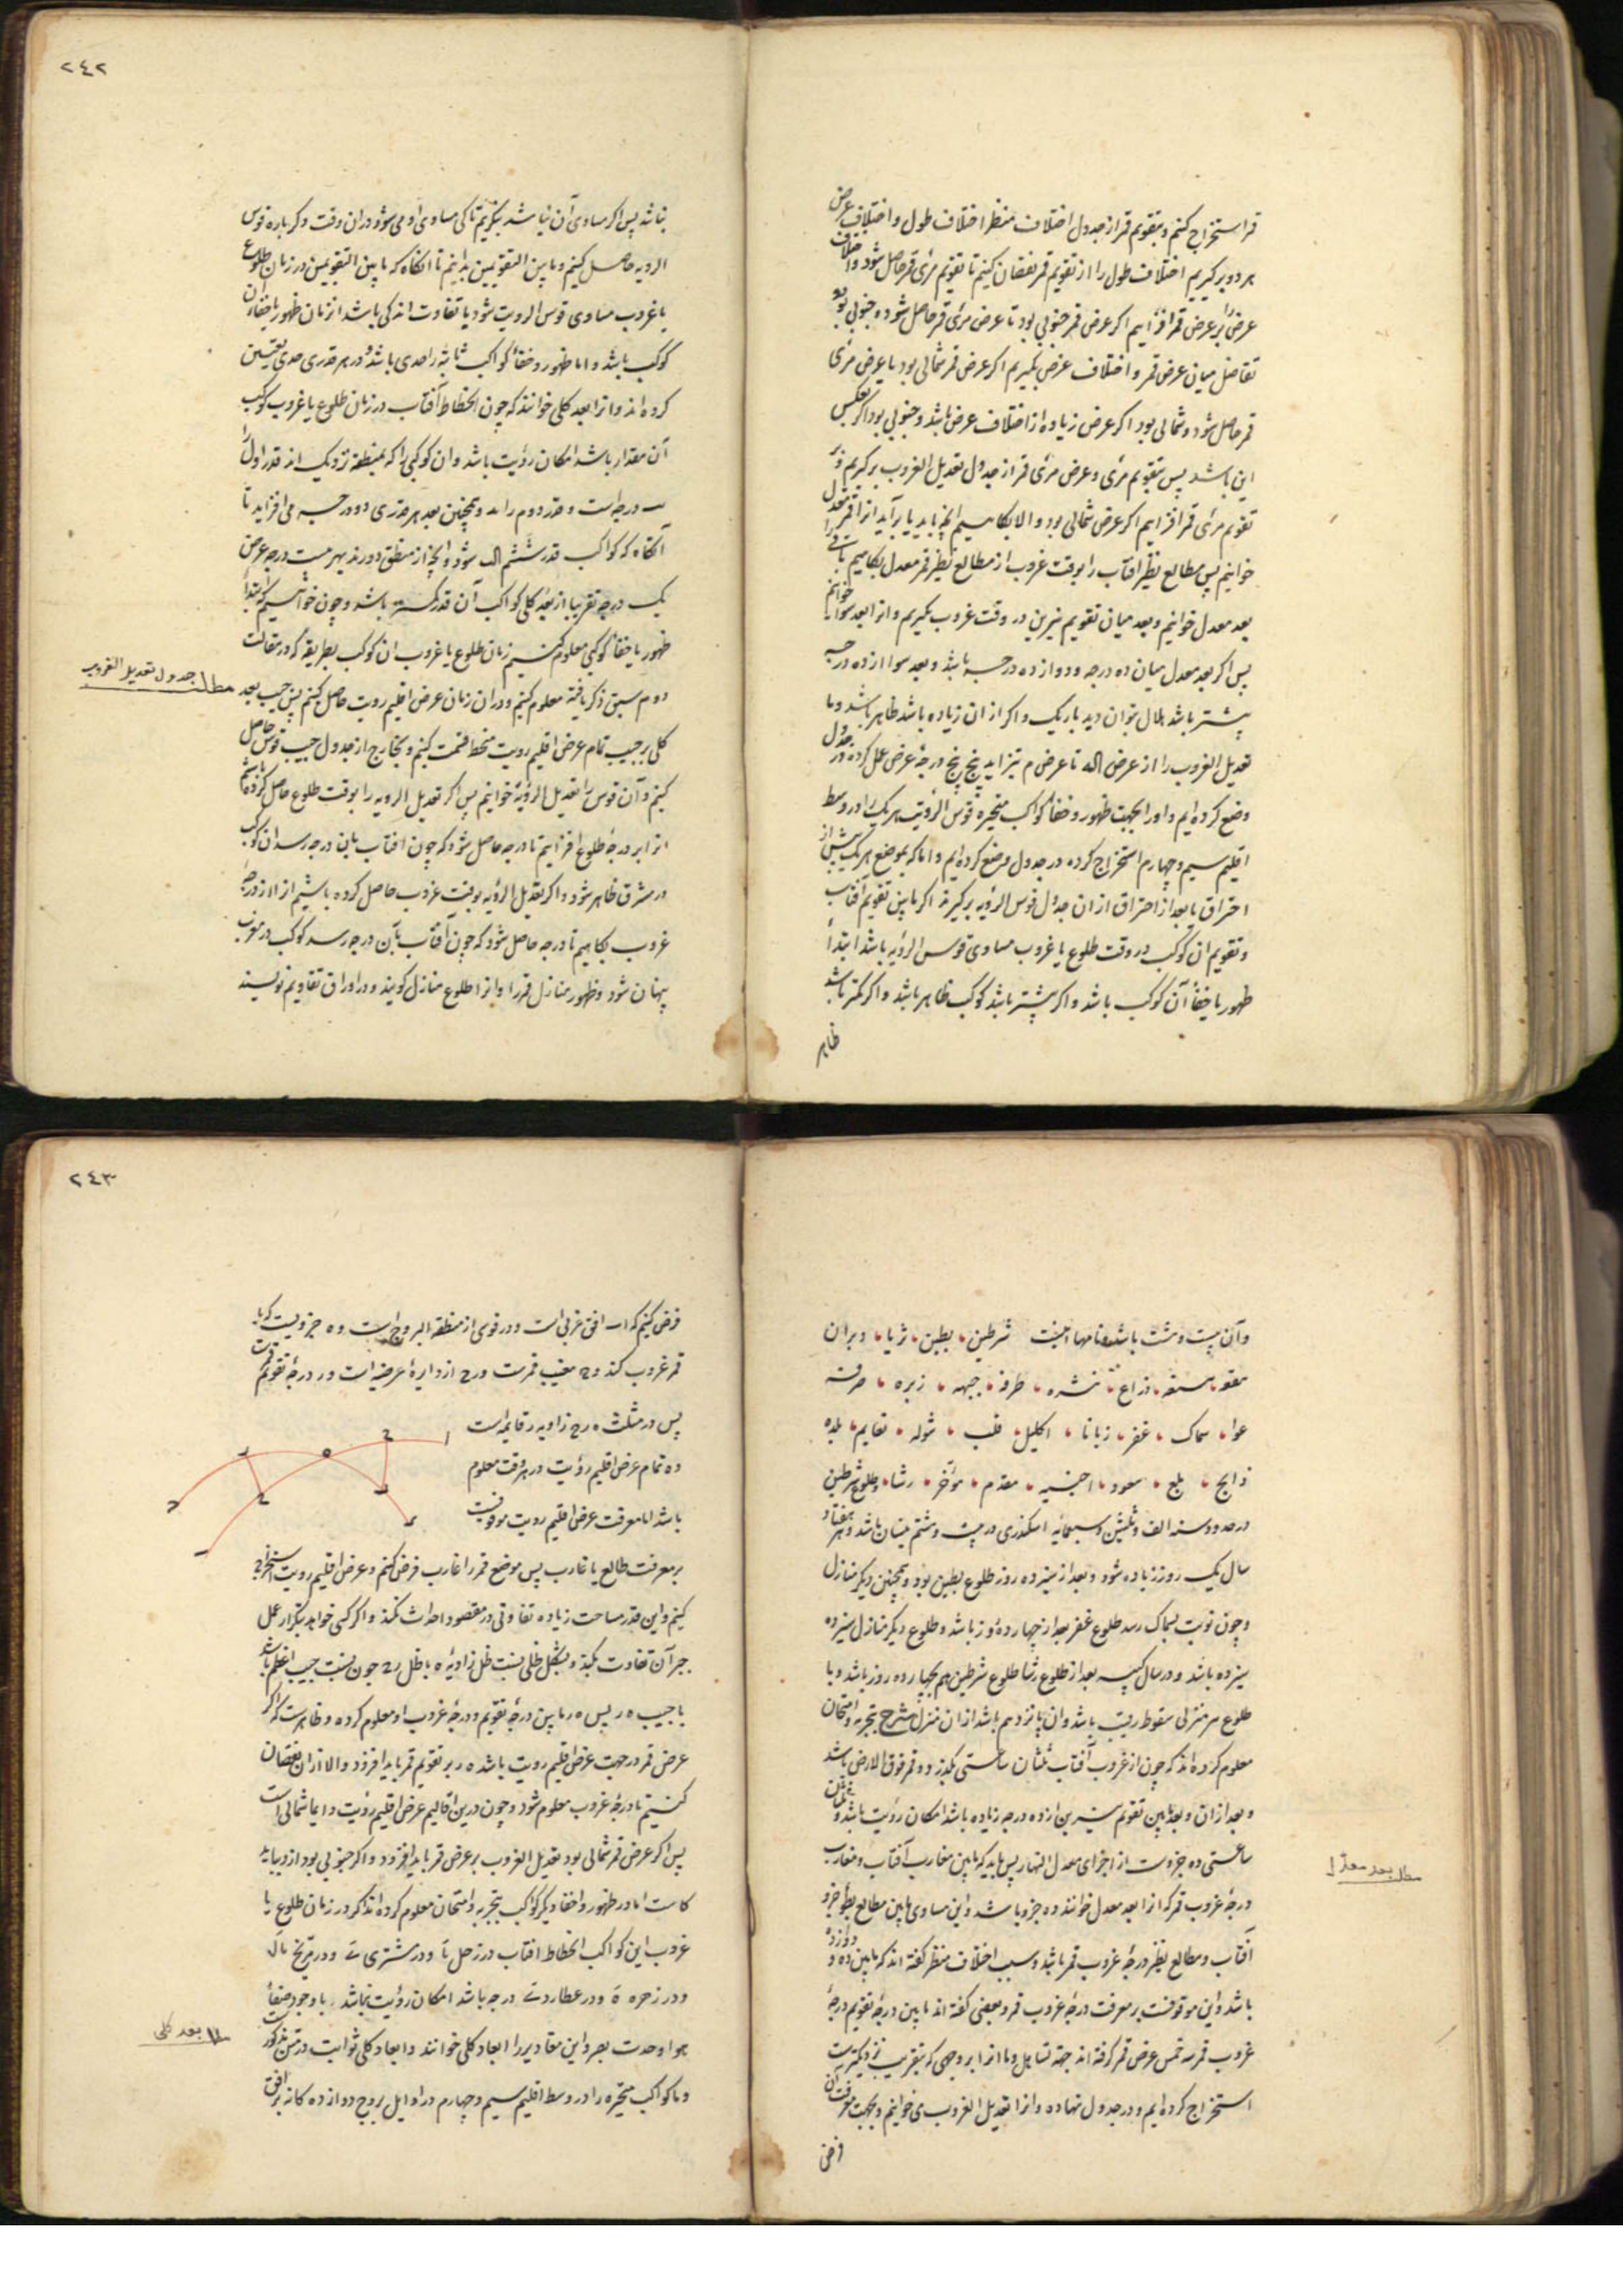 قمر استخراج کنیم و بتقویم قمر از جدول اختلاف منظر اختلاف طول و اختلاف عرض
هر دو بر گیریم اختلاف طول را از تقویم قمر نقصان کنیم تا تقویم مرئی قمر حاصل شود و اختلاف
عرض بر عرض قمر افزاییم اکر عرض قمر جنوبی بود تا عرض مرئی قمر حاصل شود و جنوبی بود
تفاضل میان عرض قمر و اختلاف عرض بگیریم اکر عرض قمر شمالی بود تا عرض مرئی
قمر حاصل شود و شمالی بود اکر عرض زیاده از اختلاف عرض باشد و جنوبی بود اکر بعکس
این باشد پس بتقویم مرئی و عرض مرئی قمر از جدول تعدیل الغروب بر گیریم و بر
تقویم مرئی قمر افزاییم اکر عرض شمالی بود والا بکاهیم انچه باید یا برآید انرا قمر معدل
خوانیم پس مطالع نظیر افتاب را بوقت غروب از مطالع نظیر قمر معدل بکاهیم باقی را
بعد معدل خوانیم و بعد میان تقویم نیرین در وقت غروب بگیریم و انرا بعد سوا خوانیم
پس اکر بعد معدل میان ده درجه و دوازده درجه باشد و بعد سوا از ده درجه
بیشتر باشد هلال توان دید باریک و اکر از ان زیاده باشد ظاهر باشد و ما
تعدیل الغروب را از عرض اله تا عرض م بتزاید پنج پنج درجهٔ عرض عمل کرده در جدول
وضع کرده ایم و اورا بجهت ظهور و خفاء کواکب متحیره قوس الرؤیت هر یک را در وسط
اقلیم سیم و چهارم استخراج کرده در جدول وضع کرده ایم و اما که بموضع هر یک پیش از
احتراق یا بعد از احتراق از ان جدول قوس الرؤیه بر گیرند اکر مابین تقویم آفتاب
و تقویم ان کوکب در وقت طلوع یا غروب مساوی قوس الرؤیه باشد ابتداء
ظهور یا خفاء آن کوکب باشد و اکر بیشتر باشد کوکب ظاهر باشد و اکر کمتر باشد
ظاهر
٢٤٢
نباشد پس اکر مساوی آن نباشد بنگریم تا کی مساوی او می شود در ان وقت دکر باره قوس
الرویه حاصل کنیم و مابین التقویمین بدانیم تا انکاه که مابین التقویمین در زمان طلوع
یا غروب مساوی قوس الرویت شود یا تفاوت اندکی باشد ان زمان ظهور یا خفاء ان
کوکب باشد و اما ظهور و خفاء کواکب ثابته را حدی باشد و در هر قدری حدی تعیین
کرده اند و انرا بعد کلی خوانند که چون انحطاط آفتاب در زمان طلوع یا غروب کوکب
آن مقدار باشد امکان رؤیت باشد و ان کوکبی را که بمنطقه نزدیک اند قدر اول را
درجه است و قدر دوم را و همچنین بعد هر قدری دو درجه می افزاید تا
آنکاه که کواکب قدر ششم شود و انچه از منطقه دورند بهر بیست درجه عرض
یک درجه تقریبا از بعد کلی کواکب آن قدر کمتر باشد و چون خواهیم که ابتداء
ظهور یا خفاء کوکبی معلوم کنیم زمان طلوع یا غروب ان کوکب بطریقه که در مقالت
دوم سبق ذکر یافته معلوم کنیم و در ان زمان عرض اقلیم رویت حاصل کنیم پس جیب بعد
مطلب جدول تعدیل الغروب
کلی بر جیب تمام عرض اقلیم رویت منحط قسمت کنیم و بخارج از جدول جیب قوس حاصل
کنیم و آن قوس را تعدیل الرؤیة خوانیم پس اکر تعدیل الرویه را بوقت طلوع حاصل کرده باشیم
انرا بر درجهٔ طلوع افزاییم تا درجه حاصل شود که چون افتاب باین درجه رسد ان کوکب
در مشرق ظاهر شود و اکر تعدیل الرؤیه بوقت غروب حاصل کرده باشیم انرا از درجهٔ
غروب بکاهیم تا درجه حاصل شود که چون آفتاب بآن درجه رسد کوکب در مغرب
پنهان شود و ظهور منازل قمر را و انرا طلوع منازل کویند و در اوراق تقاویم نویسند
وآن بیست و هشت باشد و نامها اینست شرطین بطین ثریا دبران
هقعه هنعه ذراع نثره طرفه جبهه زبره صرفه
عوا سماک غفر زبانا اکلیل قلب شوله نعایم بلده
ذابح بلع سعود اخبیه مقدم مؤخر رشا و طلوع شرطین
در حدود سنه الف و ثلثین و سبعمائه اسکندری در بیست و هشتم نیسان باشد و هر هفتاد
سال یک روز زیاده شود و بعد از سیزده روز طلوع بطین بود و همچنین دیکر منازل
و چون نوبت بسماک رسد طلوع غفر بعد از چهارده روز باشد و طلوع دیکر منازل سیزده
سیزده باشد و در سال کبیسه بعد از طلوع رشا طلوع شرطین هم بچهارده روز باشد و با
طلوع هر منزلی سقوط رقیب باشد و ان پانزدهم باشد از ان منزل شرح بتجربه و امتحان
معلوم کرده اند که چون از غروب آفتاب ثلثان ساعتی بگذرد و قمر فوق الارض باشد
و بعد از ان و بعد مابین تقویم نیرین از ده درجه زیاده باشد امکان رؤیت باشد و ثلثان
ساعتی ده جزوست از اجزای معدل النهار پس باید که مابین مغارب آفتاب و مغارب
مطلب بعد معدل
درجهٔ غروب قمر که انرا بعد معدل خوانند ده جزو باشد و این مساوی مابین مطالع نظیر جزو
آفتاب و مطالع نظیر درجهٔ غروب قمر باشد و بسبب اختلاف منظر کفته اند که مابین ده و دوازده
باشد و این موقوفست بر معرفت درجهٔ غروب قمر و بعضی کفته اند مابین درجهٔ تقویم و درجهٔ
غروب قمر سه خمس عرض قمر کرفته اند جهة تساهل و ما انرا بر وجهی که بتقریب نزدیکترست
استخراج کرده ایم و در جدول نهاده و انرا تعدیل الغروب می خوانیم و بجهت معرفت آن
فرض
٢٤٣
فرض کنیم که اب افق غربی است و در قوسی از منطقة البروج است و ه جزویست که با
قمر غروب کند و ح مغیب قمرست و رح از دایرهٔ عرضیه است و ر درجهٔ تقویم قمرست
پس در مثلث ه رح زاویه ر قایمه است
و ه تمام عرض اقلیم رؤیت در هر وقت معلوم
باشد اما معرفت عرض اقلیم رویت موقوفست
بر معرفت طالع یا غارب پس موضع قمر را غارب فرض کنیم و عرض اقلیم رویت استخراج
کنیم و این قدر مسامحت زیاده تفاوتی در مقصود احداث نکند و اکر کسی خواهد بتکرار عمل
جبر آن تفاوت بکند و بشکل ظلی نسبت ظل زاویهٔ ه با ظل رح چون نسبت جیب اعظم باشد
با جیب ه ر پس ه ر مابین درجهٔ تقویم و درجهٔ غروب او معلوم کرده و ظاهرست که اکر
عرض قمر در جهت عرض اقلیم رویت باشد ه ر بر تقویم قمر باید افزود والا از ان نقصان
کنیم تا درجهٔ غروب معلوم شود و چون درین اقالیم عرض اقلیم رؤیت دایما شمالی است
پس اکر عرض قمر شمالی بود تعدیل الغروب بر عرض قمر باید افزود و اکر جنوبی بود ازو بباید
کاست اما در ظهور و اخفاء دیکر کواکب بتجربه و امتحان معلوم کرده اند که در زمان طلوع یا
غروب این کواکب انحطاط افتاب در زحل یا و در مشتری ی و در مریخ یا ل
و در زهره ه و در عطارد ی درجه باشد امکان رؤیت باشد با وجود صفاء
هوا و حدت بصر و این مقادیر را ابعاد کلی خوانند و ابعاد کلی ثوابت در متن مذکور
مطلب بعد کلی
و ما کواکب متحیره را در وسط اقلیم سیم و چهارم در اوایل بروج دوازده کانه بر افق